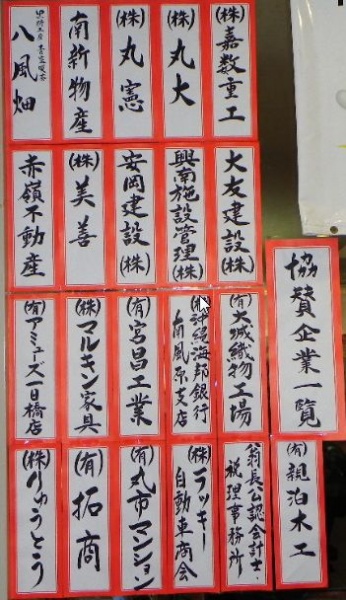 協賛企業一覧
(株)嘉数重工
(株)丸大
(株)丸憲
南新物産
八風畑
大友建設(株)
興南施設管理(株)
安岡建設(株)
(株)美善
赤嶺不動産
(有)大城織物工場
(株)沖縄海邦銀行
南風原支店
(有)宮昌工業
(株)マルキン家具
(有)アミューズ一日橋店
(有)親泊木工
翁長公認会計士・
税理事務所
(株)ラッキー
自動車商会
(有)丸市マンション
(有)拓商
(株)りゅうとう